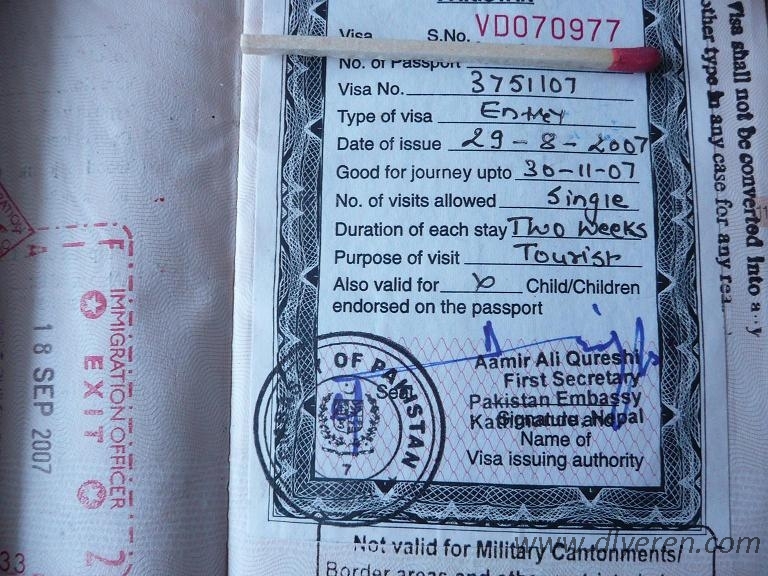 Visa S.No. VD070977
No. of Passport
Visa No. 3751107
Type of visa Entry
Date of issue 29-8-2007
Good for journey upto 30-11-07
No. of visits allowed Single
Duration of each stay Two weeks
Purpose of visit Tourist
Also valid for Child/Children
endorsed on the passport
OF PAKISTAN
7
Seal
Aamir Ali Qureshi
First Secretary
Pakistan Embassy
Kathmandu, Nepal
Signature and
Name of
Visa issuing authority
Not valid for Military Cantonments/
Border areas and
Visa shall not be converted into any
other type in any case for any
IMMIGRATION OFFICER
EXIT
18 SEP 2007
F
A
I
2
33
www.dlveren.com